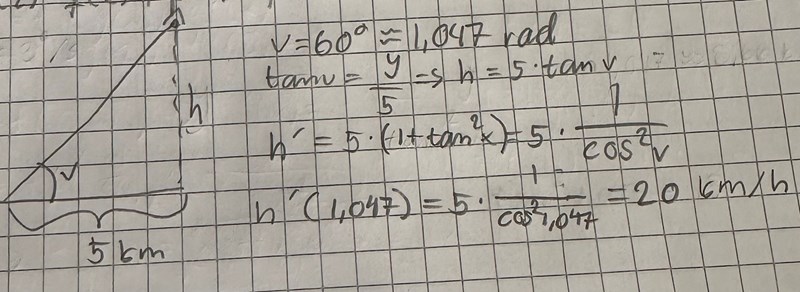 v=60° ≈ 1,047 rad
tanv = y/5 => h = 5·tan v
h
h' = 5·(1+tan²x) = 5 · 1/cos²v
v
h'(1,047) = 5· 1/cos²1,047 = 20 km/h
5 km